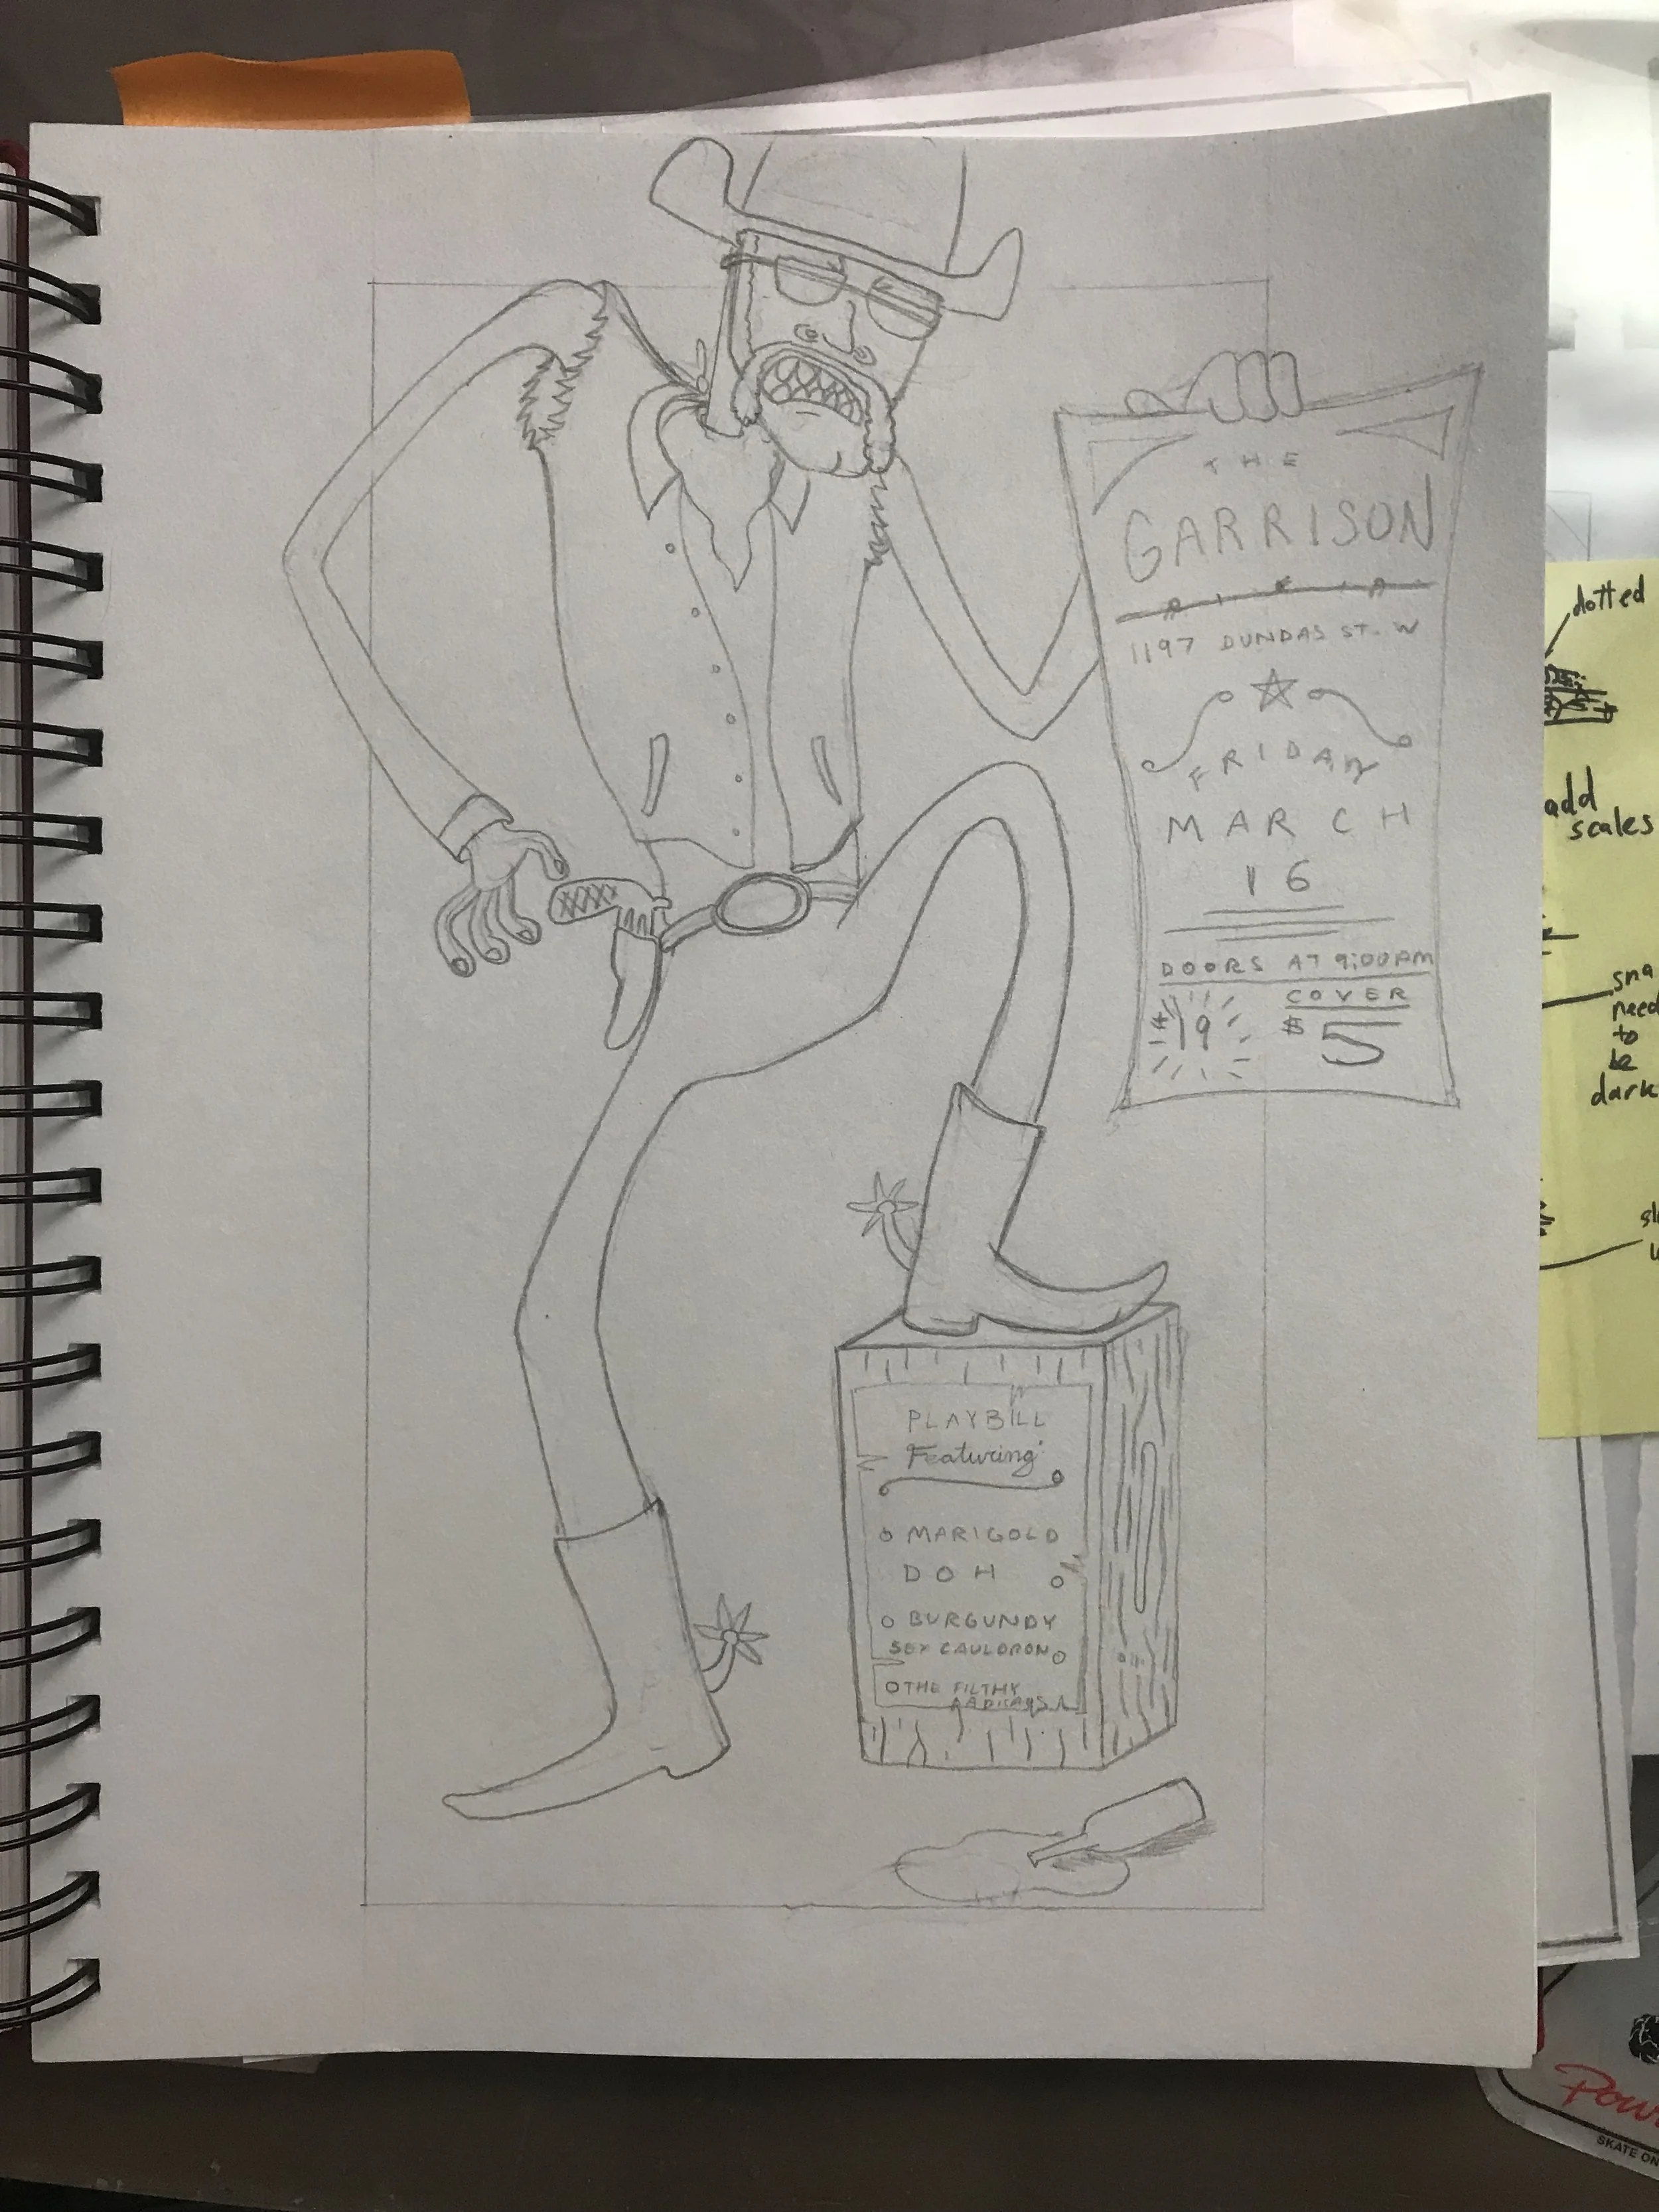 THE
GARRISON
1197 DUNDAS ST. W
FRIDAY
MARCH
16
DOORS AT 9:00PM
COVER
$5
19
PLAYBILL
Featuring
MARIGOLD
DOH
BURGUNDY
SEX CAULDRON
THE FILTHY
dotted
add
scales
sna
need
to
be
dark
SKATE ON